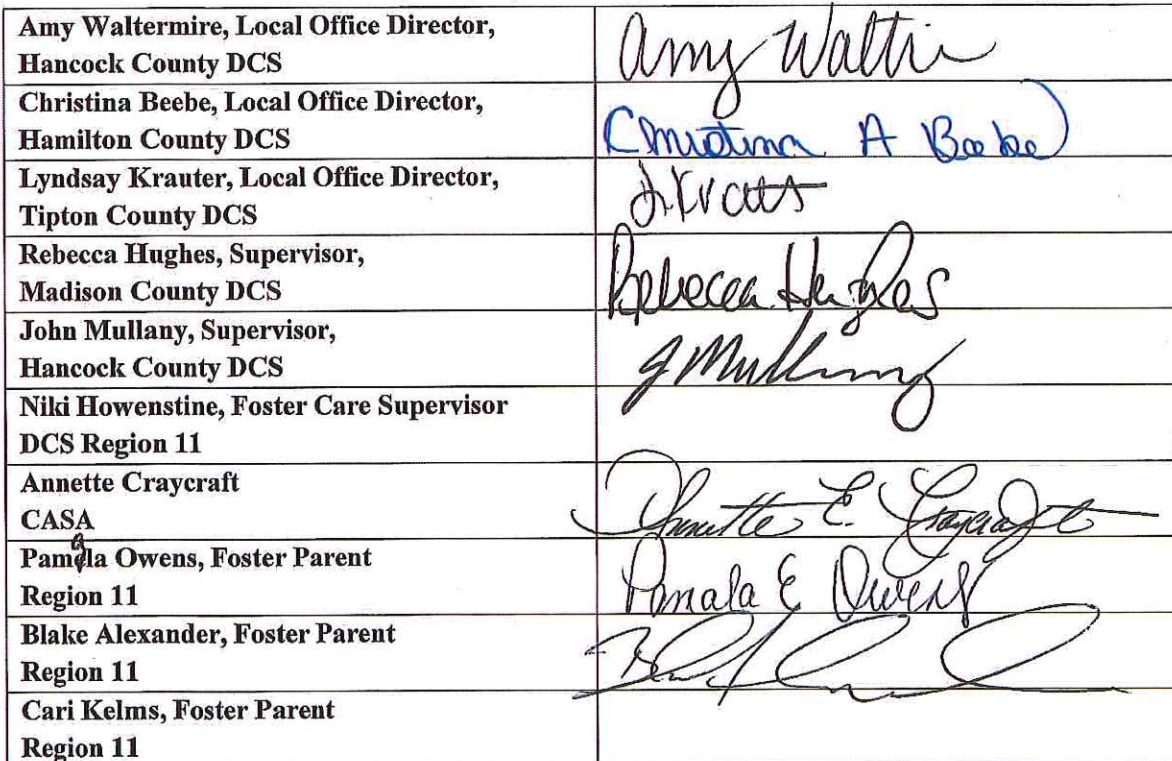 Amy Waltermire, Local Office Director,
Hancock County DCS
Amy Walti
Christina Beebe, Local Office Director,
Hamilton County DCS
Christina A Beebe
Lyndsay Krauter, Local Office Director,
Tipton County DCS
Rebecca Hughes, Supervisor,
Madison County DCS
Rebecca Hughes
John Mullany, Supervisor,
Hancock County DCS
J Mullany
Niki Howenstine, Foster Care Supervisor
DCS Region 11
Annette Craycraft
CASA
Annette E. Craycraft
Pamala Owens, Foster Parent
Region 11
Pamala E Owens
Blake Alexander, Foster Parent
Region 11
Cari Kelms, Foster Parent
Region 11